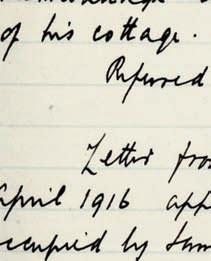 of his cottage.
Referred
Letter from
April 1916 app
occupied by Sam